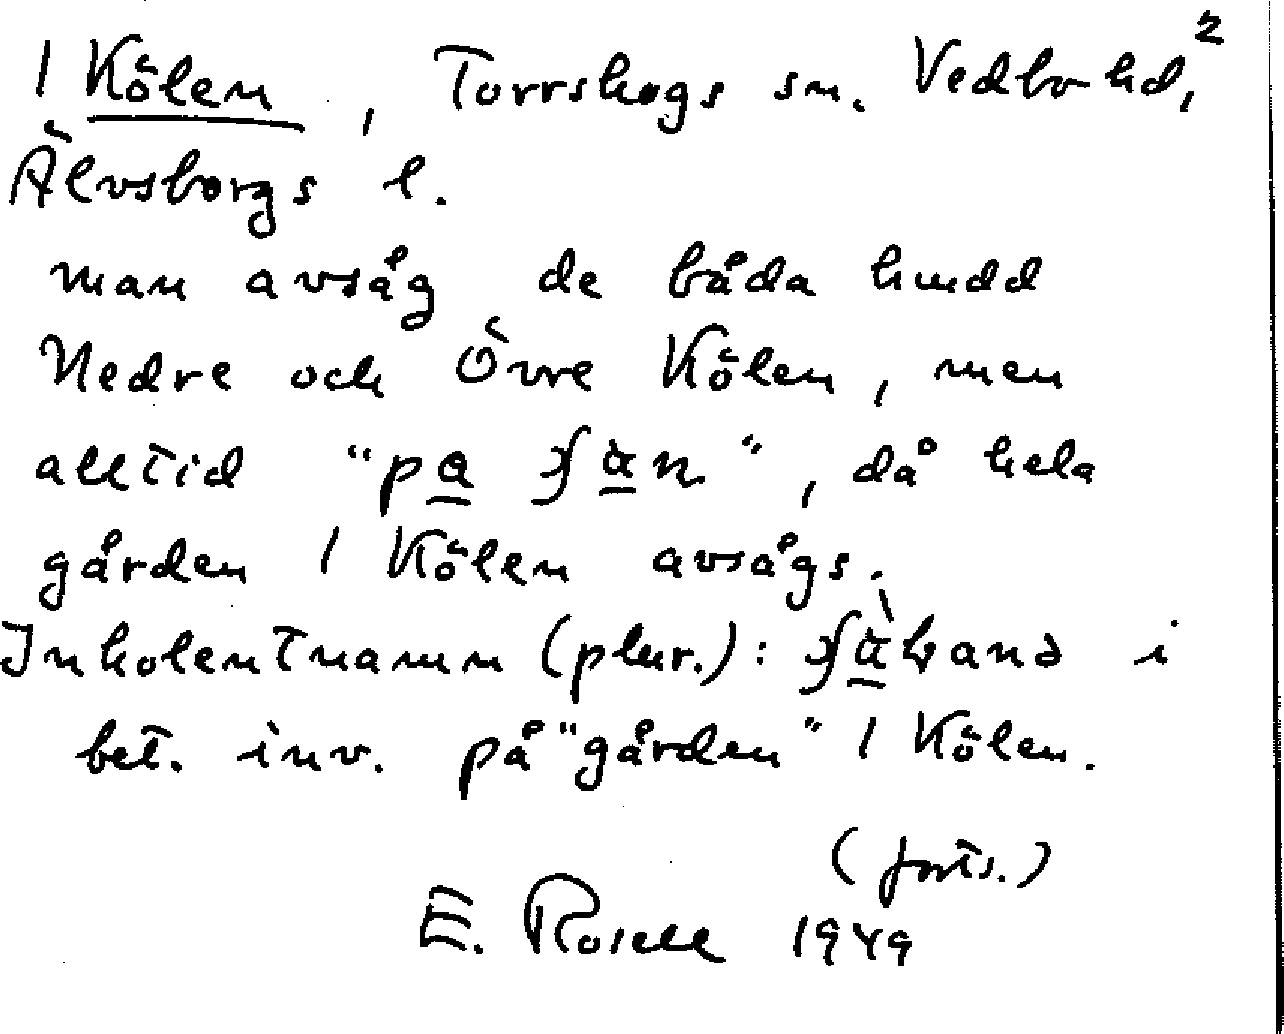 1 Kölen, Torrskogs sn. Vedbo hd, 2
Älvsborgs l.
man avsåg de båda hmdd
Nedre och Övre Kölen, men
alltid "pa", då hela
gården 1 Kölen avsågs.
Inkolentnamn (plur.): i
bet. inv. på "gården" 1 Kölen.
(forts.)
E. Rosell 1949